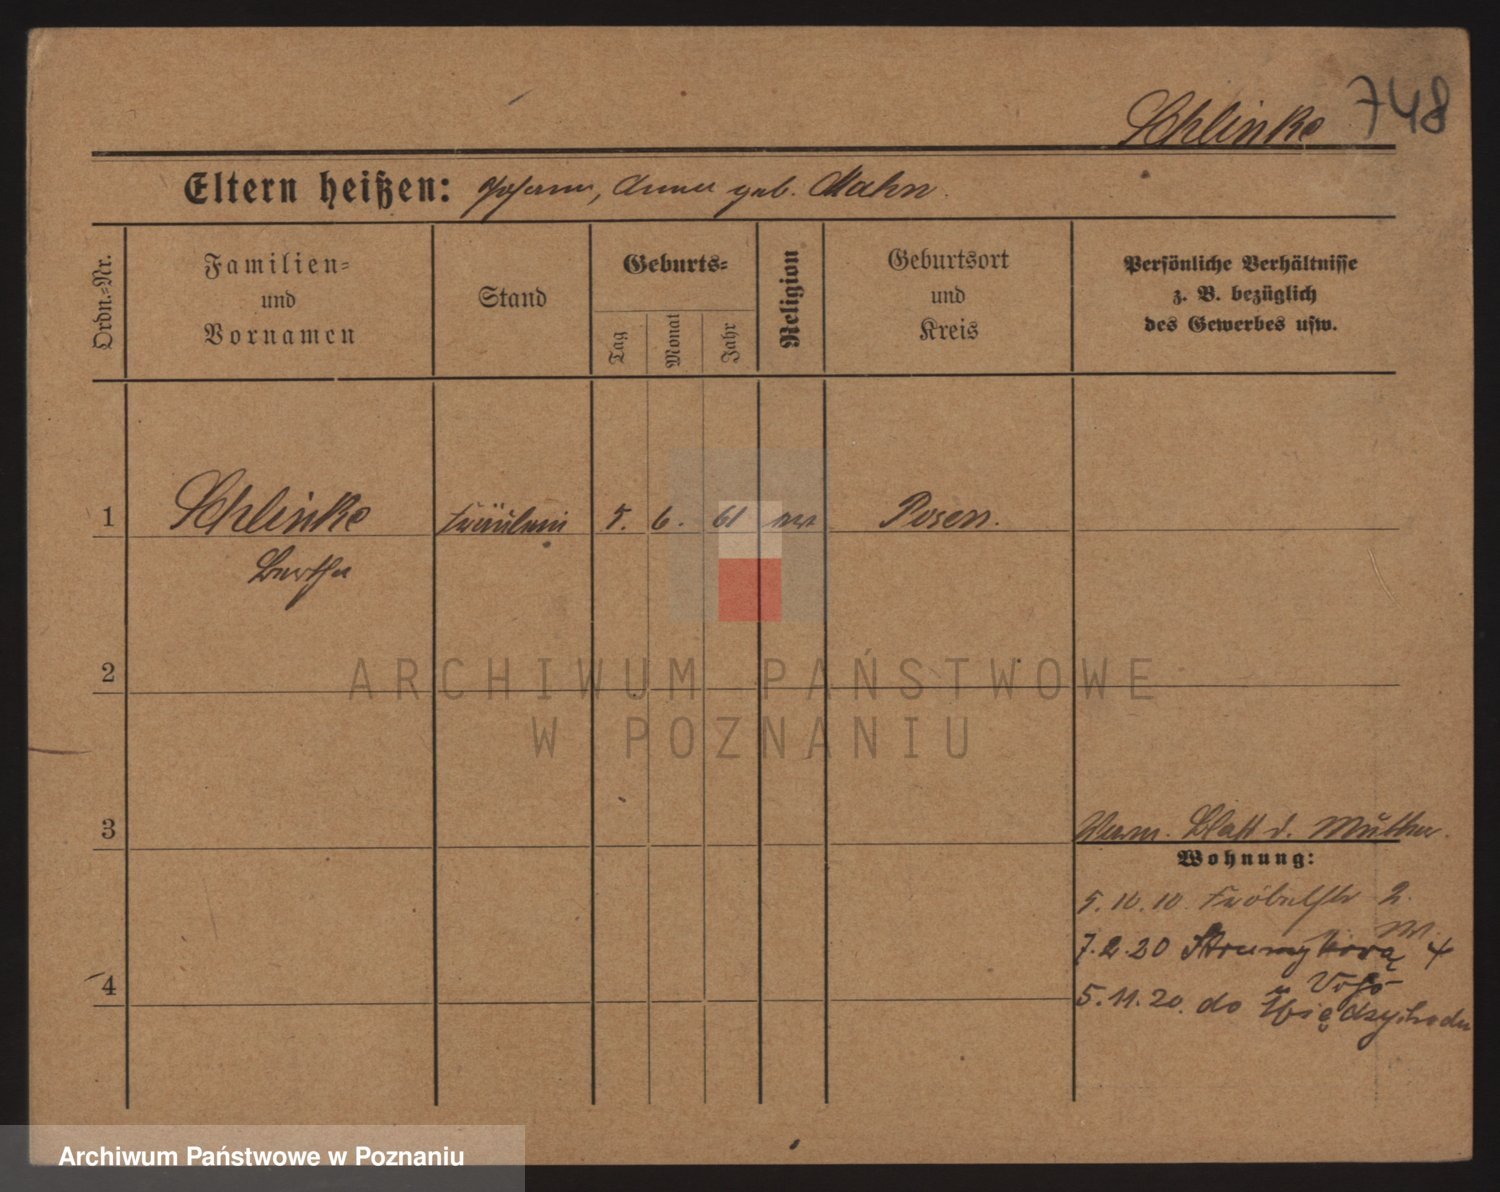 Schlinke 748
Eltern heißen: Johann, Anna geb. Mahn.
Ordn.-Nr.
Familien-
und
Vornamen
Stand
Geburts-
Tag
Monat
Jahr
Religion
Geburtsort
und
Kreis
Persönliche Verhältnisse
z. B. bezüglich
des Gewerbes usw.
1 Schlinke Fräulein 5. 6. 61 Posen.
Bertha
2
ARCHIWUM PAŃSTWOWE
W POZNANIU
3 Blatt d. Mutter.
Wohnung:
5.10.10. Fröbelstr 2.
7.2.20 Strumykowa 4
4
5.11.20. do
Archiwum Państwowe w Poznaniu